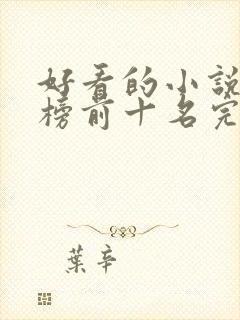 好看的小説
榜前十名完
葉辛